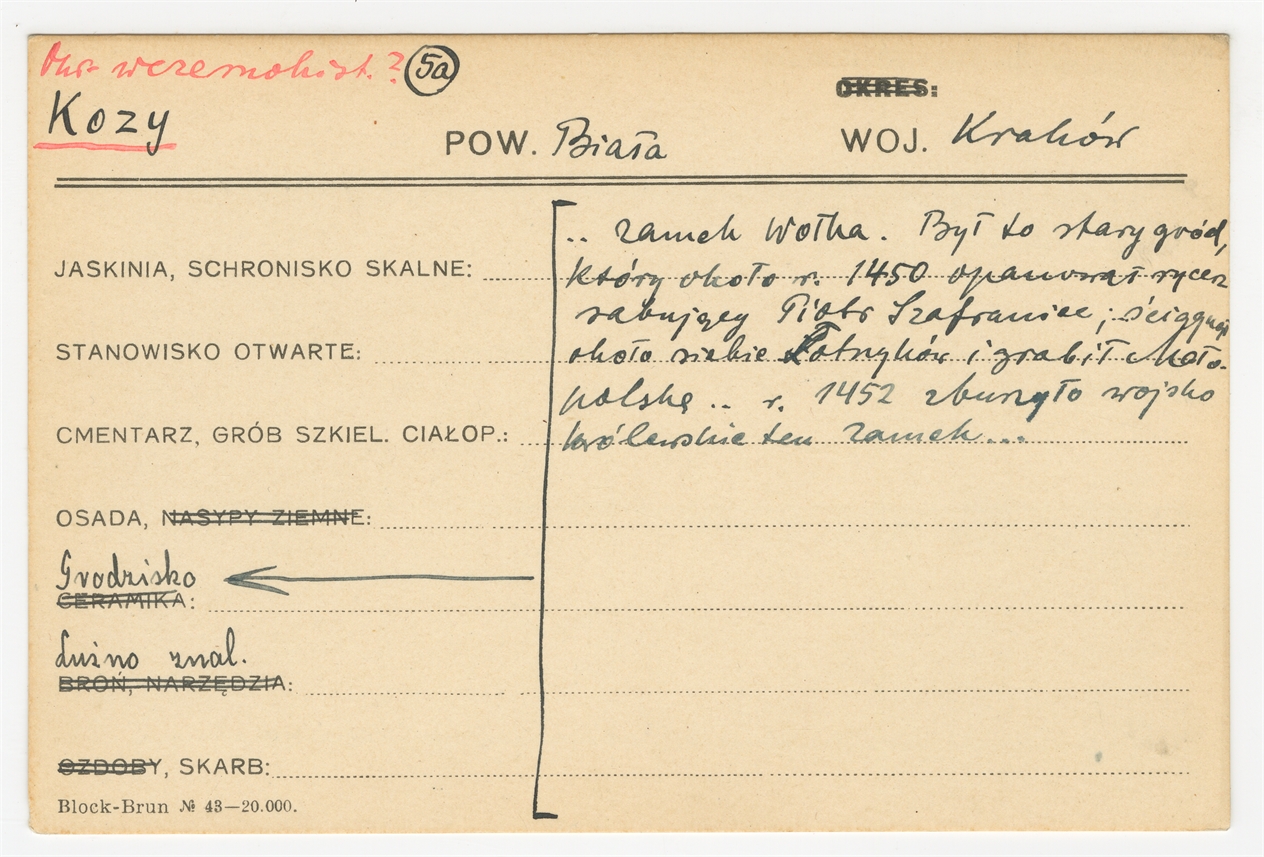 Okr. wczesnohist.? 5a
OKRES:
Kozy
POW. Biała WOJ. Kraków
.. zamek Wołka. Był to stary gród,
JASKINIA, SCHRONISKO SKALNE: który około r. 1450 opanował rycerz
rabujący Piotr Szafraniec; ściągnął
STANOWISKO OTWARTE: około siebie Łotrzyków i grabił Mało-
polskę .. r. 1452 zburzyło wojsko
CMENTARZ, GRÓB SZKIEL. CIAŁOP.: królewskie ten zamek...
OSADA, NASYPY ZIEMNE:
Grodzisko
CERAMIKA:
Luźno znal.
BROŃ, NARZĘDZIA:
OZDOBY, SKARB:
Block-Brun № 43—20.000.